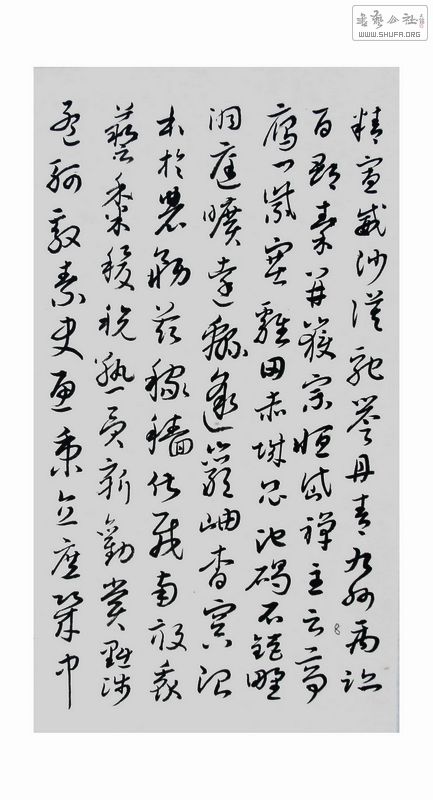 书艺公社
WWW.SHUFA.ORG
精宣威沙漠馳譽丹青九州禹跡
百郡秦并嶽宗恒岱禪主云亭
8
雁門紫塞雞田赤城昆池碣石鉅野
洞庭曠遠綿邈巖岫杳冥治
本於農務茲稼穡俶載南畝我
藝黍稷稅熟貢新勸賞黜陟
孟軻敦素史魚秉直庶幾中